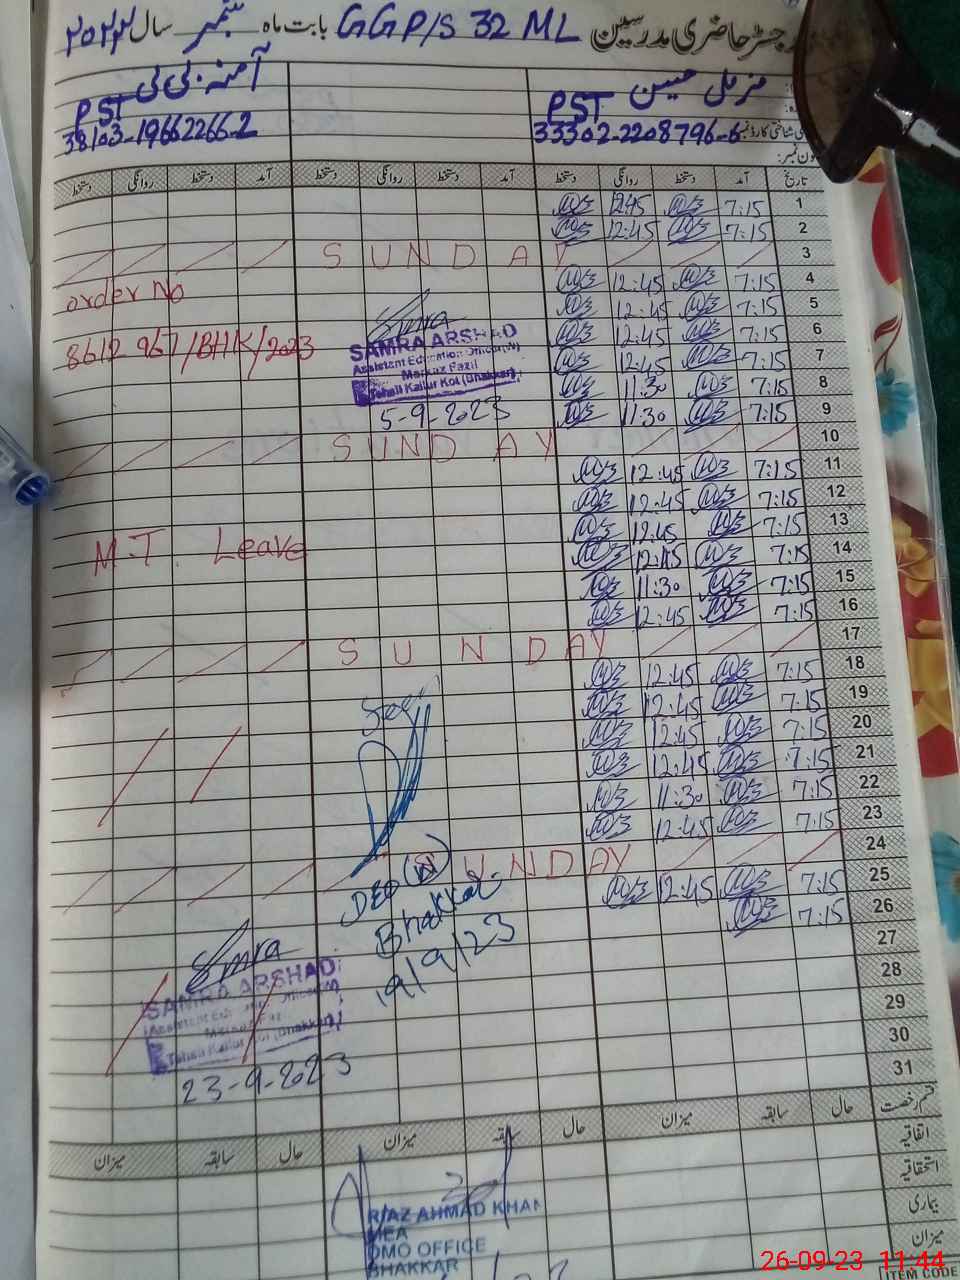 رجسٹر حاضری مدرسین GGP/S 32 ML بابت ماہ ستمبر سال ۲۰۲۳
مزمل حسین
آمنہ بی بی
PST
PST
شناختی کارڈ نمبر 33302-2208796-6
38103-1966226-2
فون نمبر:
تاریخ آمد دستخط روانگی دستخط آمد دستخط روانگی دستخط آمد دستخط روانگی دستخط
1 7:15 12:45
2 7:15 12:45
3 SUNDAY
4 7:15 12:45
order No
5 7:15 12:45
6 7:15 12:45
8612 967/BHK/2023
SAMRA ARSHAD
Assistant Education Officer(W)
Markaz Fazil
Tehsil Kallur Kot (Bhakkar)
5-9-2023
7 7:15 12:45
8 7:15 11:30
9 7:15 11:30
10 SUNDAY
11 7:15 12:45
12 7:15 12:45
13 7:15 12:45
M.T Leave
14 7:15 12:45
15 7:15 11:30
16 7:15 12:45
17 SUNDAY
18 7:15 12:45
19 7:15 12:45
20 7:15 12:45
21 7:15 12:45
22 7:15 11:30
23 7:15 12:45
24 SUNDAY
25 7:15 12:45
26 7:15
DEO (W)
Bhakkar
19/9/23
27
28
29
30
31
SAMRA ARSHAD
Assistant Education Officer(W)
Markaz Fazil
Tehsil Kallur Kot (Bhakkar)
23-9-2023
قسم رخصت حال سابقہ میزان حال سابقہ میزان حال سابقہ میزان
اتفاقیہ
استحقاقیہ
بیماری
میزان
RIAZ AHMAD KHAN
MEA
DMO OFFICE
BHAKKAR
26-09-23 11:44
ITEM CODE